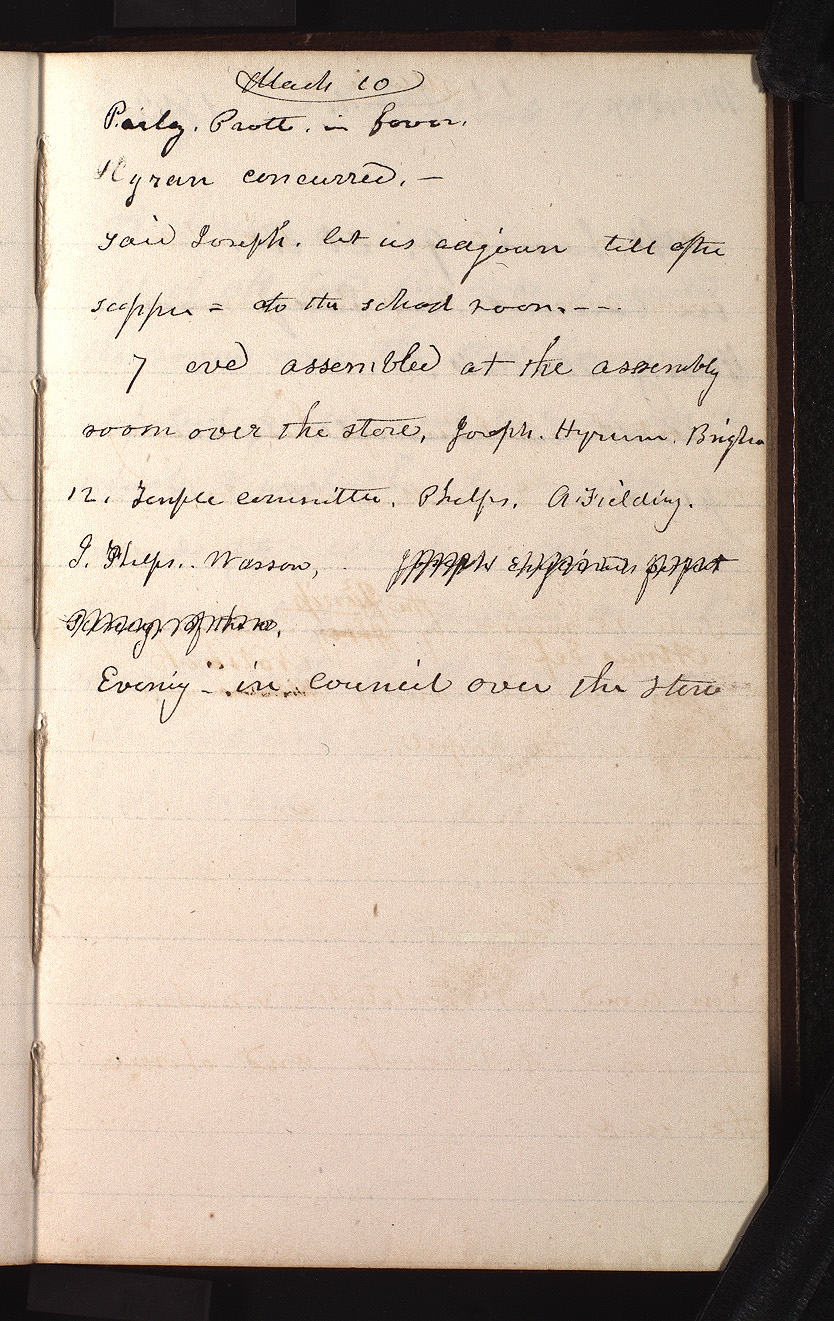 March 10
Parley. Pratt. in favor.
Hyram concurred. —
said Joseph. let us adjourn till afte
supper = to the school room. - - -
7 eve assembled at the assembly
room over the store, Joseph. Hyrum. Brigham
12. Temple committee. Phelps. A. Fielding.
J. Phelps. Wasson,
Evenig - in council over the store